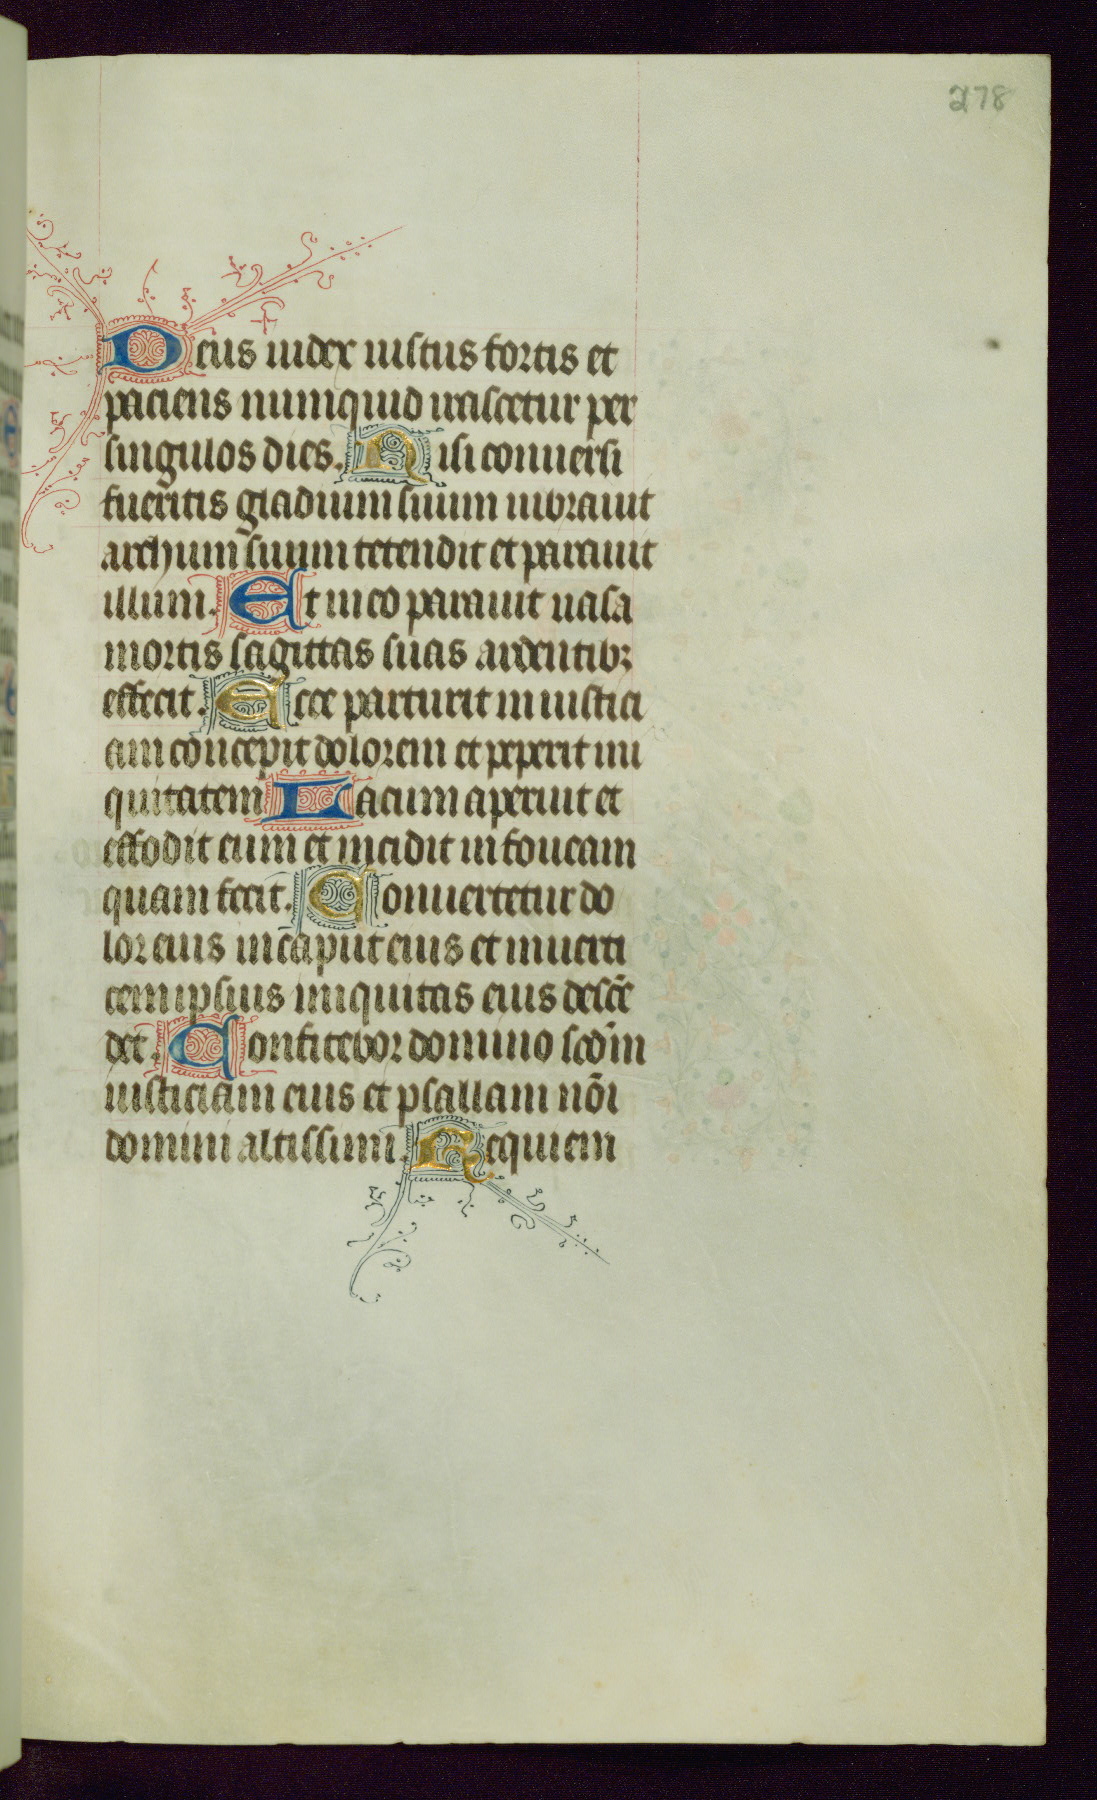 278
Deus iudex iustus fortis et
paciens numquid irascetur per
singulos dies. Nisi conuersi
fueritis gladium suum uibrauit
archum suum tetendit et parauit
illum. Et in eo parauit uasa
mortis sagittas suas ardentibꝫ
effecit. Ecce parturit iniustici
am concepit dolorem et peperit ini
quitatem Lacum aperuit et
effodit eum et incidit in foueam
quam fecit. Conuertetur do
lor eius in caput eius et in uerti
cem ipsius iniquitas eius descē
det. Confitebor domino scdm̄
iusticiam eius et psallam nōi
domini altissimi. Requiem